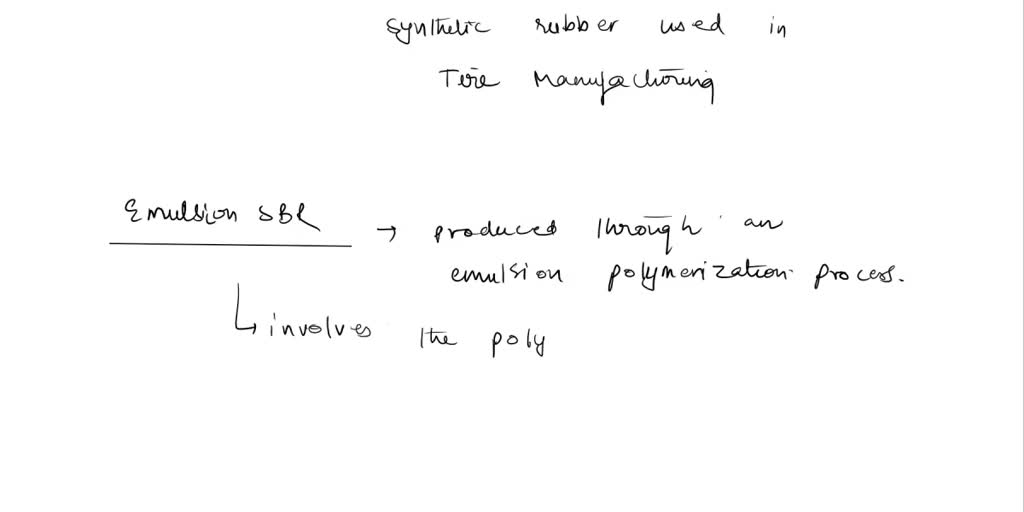 synthetic rubber used in
Tire Manufacturing
Emulsion SBR → produced through an
emulsion polymerization process.
↳ involves the poly